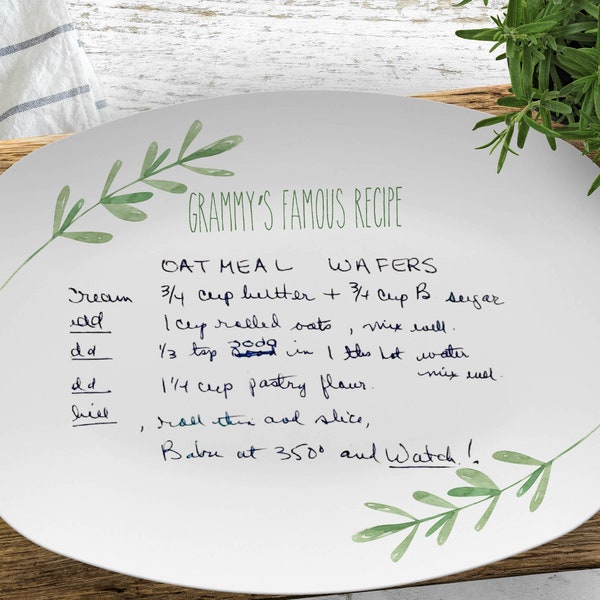 GRAMMY'S FAMOUS RECIPE
OATMEAL WAFERS
Cream 3/4 cup butter + 3/4 cup B sugar
add 1 cup rolled oats, mix well.
dd 1/3 tsp soda in 1 tbs hot water
mix well.
dd 1 1/4 cup pastry flour.
hill, roll thin and slice,
Bake at 350° and Watch!